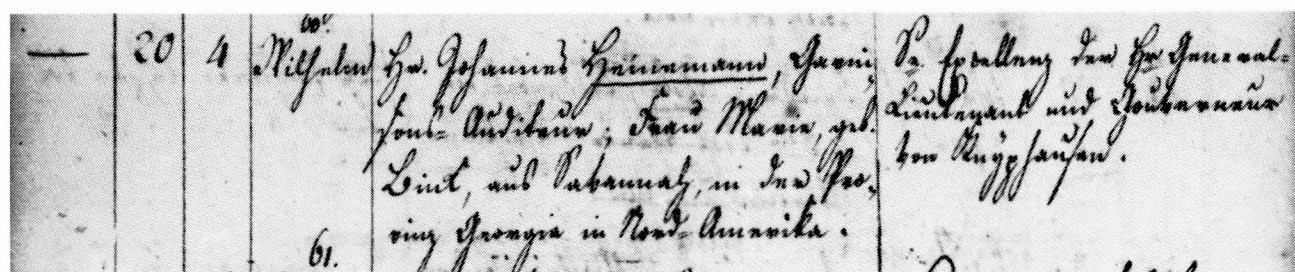 60.
— 20 4 Wilhelm Hr. Johannes Heinemann, Garni-
sons-Auditeur; Frau Marie, geb.
Bint, aus Savannah, in der Pro-
vinz Georgia in Nord-Amerika.
Se. Excellenz der Hr. General-
Lieutenant und Gouverneur
von Knyphausen.
61.